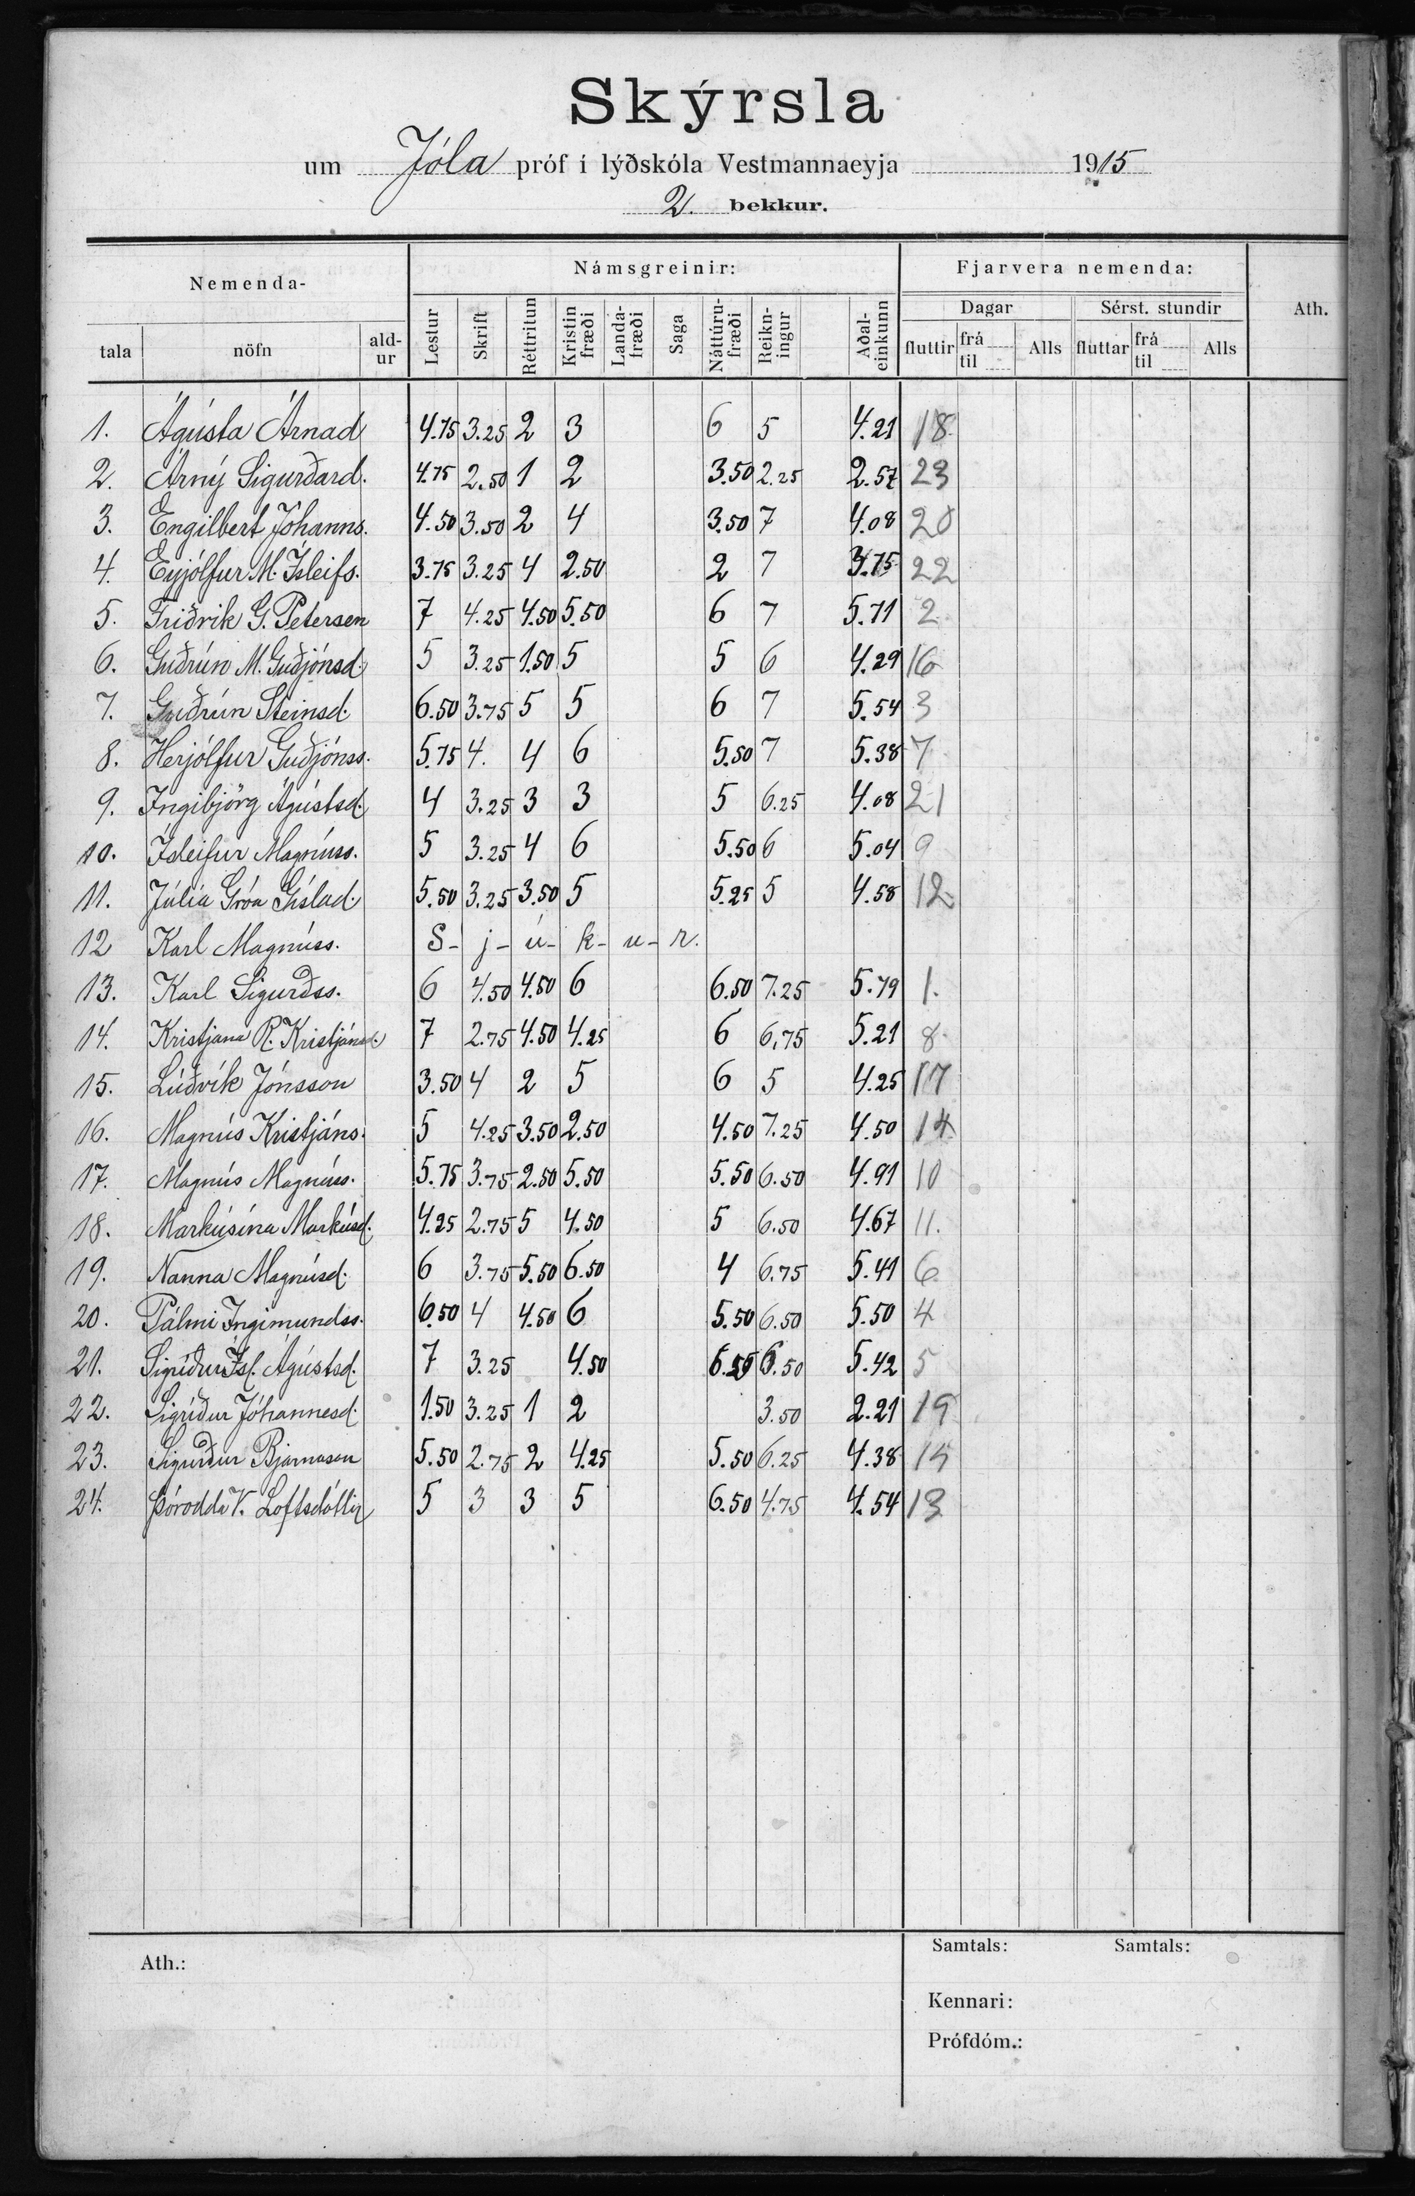 Skýrsla
um Jóla próf í lýðskóla Vestmannaeyja 1915
2. bekkur.
Nemenda- Námsgreinir: Fjarvera nemenda: Ath.
Dagar Sérst. stundir
tala nöfn ald-ur Lestur Skrift Réttritun Kristin fræði Landa-fræði Saga Náttúru-fræði Reikn-ingur Aðal-einkunn fluttir frá til Alls fluttar frá til Alls
1. Ágústa Árnad 4.75 3.25 2 3 6 5 4.21 18
2. Árný Sigurðard. 4.75 2.50 1 2 3.50 2.25 2.57 23
3. Engilbert Jóhanns. 4.50 3.50 2 4 3.50 7 4.08 20
4. Eyjólfur M. Ísleifs. 3.75 3.25 4 2.50 2 7 3.75 22
5. Friðrik G. Petersen 7 4.25 4.50 5.50 6 7 5.71 2
6. Guðrún M. Guðjónsd. 5 3.25 1.50 5 5 6 4.29 16
7. Guðrún Steinsd. 6.50 3.75 5 5 6 7 5.54 3
8. Herjólfur Guðjónss. 5.75 4. 4 6 5.50 7 5.38 7
9. Ingibjörg Ágústsd. 4 3.25 3 3 5 6.25 4.08 21
10. Ísleifur Magnúss. 5 3.25 4 6 5.50 6 5.04 9
11. Júlía Gróa Gíslad. 5.50 3.25 3.50 5 5.25 5 4.58 12
12 Karl Magnúss. S- j- ú- k- u- r.
13. Karl Sigurðss. 6 4.50 4.50 6 6.50 7.25 5.79 1.
14. Kristjana R. Kristjánsd. 7 2.75 4.50 4.25 6 6,75 5.21 8
15. Lúðvík Jónsson 3.50 4 2 5 6 5 4.25 17
16. Magnús Kristjáns. 5 4.25 3.50 2.50 4.50 7.25 4.50 14
17. Magnús Magnúss. 5.75 3.75 2.50 5.50 5.50 6.50 4.91 10
18. Markúsína Markúsd. 4.25 2.75 5 4.50 5 6.50 4.67 11.
19. Nanna Magnúsd. 6 3.75 5.50 6.50 4 6.75 5.41 6
20. Pálmi Ingimundss. 6.50 4 4.50 6 5.50 6.50 5.50 4
21. Sigríður Ísl. Ágústsd. 7 3.25 4.50 6.50 5.42 5
22. Sigríður Jóhannesd. 1.50 3.25 1 2 3.50 2.21 19
23. Sigurður Bjarnason 5.50 2.75 2 4.25 5.50 6.25 4.38 15
24. Þórodda V. Loftsdóttir 5 3 3 5 6.50 4.75 4.54 13
Ath.: Samtals: Samtals:
Kennari:
Prófdóm.: